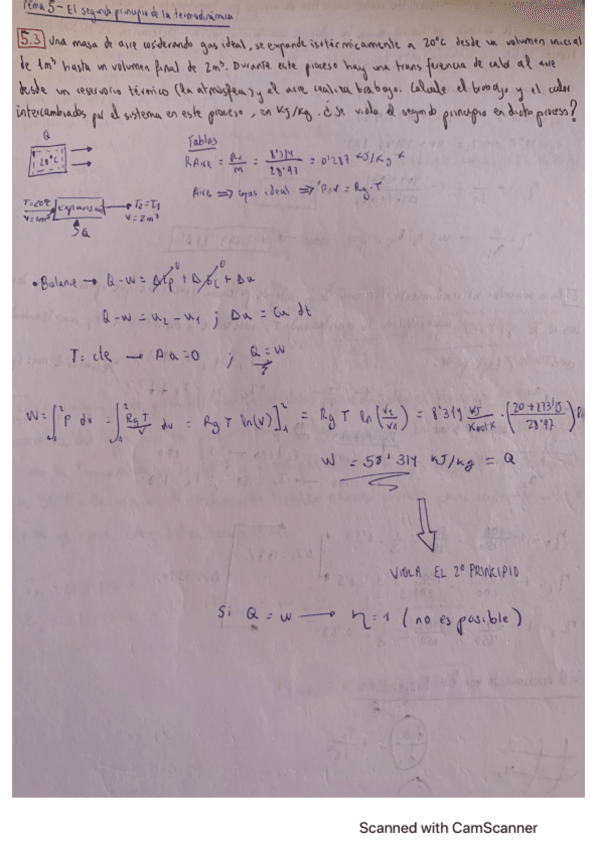 Tema 5 - El segundo principio de la termodinámica
5.3 Una masa de aire cosiderando gas ideal, se expande isotérmicamente a 20ºC desde un volumen inicial
de 1m³ hasta un volumen final de 2m³. Durante este proceso hay una transferencia de calor al aire
desde un reservorio térmico (la atmósfera) y el aire realiza trabajo. Calcule el trabajo y el calor
intercambiados por el sistema en este proceso, en kJ/kg. ¿Se viola el segundo principio en dicho proceso?
Q
20ºC
Tablas
RAire = Ru/M = 8'314/28'97 = 0'287 kJ/kg K
Aire ⟹ Gas ideal ⟹ P·v = Rg·T
T=20ºC
V=1m³
expansión
T2=T1
V=2m³
Q
• Balance → Q-W = ΔEp + ΔEc + Δu
0 0
Q-W = u2 - u1 ; Δu = Cu dt
T: cte → Δu=0 ; Q=W
W = ∫₁² P dv = ∫₁² RgT/v dv = Rg T ln(v)]₁² = Rg T ln(v2/v1) = 8'314 kJ/kmol K · (20+273'15/28'97)
W = 58'314 kJ/kg = Q
VIOLA EL 2º PRINCIPIO
Si Q = W → η=1 (no es posible)
Scanned with CamScanner